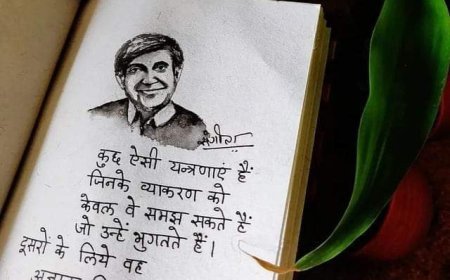 कुछ ऐसी यन्त्रणाएं हैं
जिनके व्याकरण को
केवल वे समझ सकते हैं
जो उन्हें भुगतते हैं।
दूसरो के लिये वह